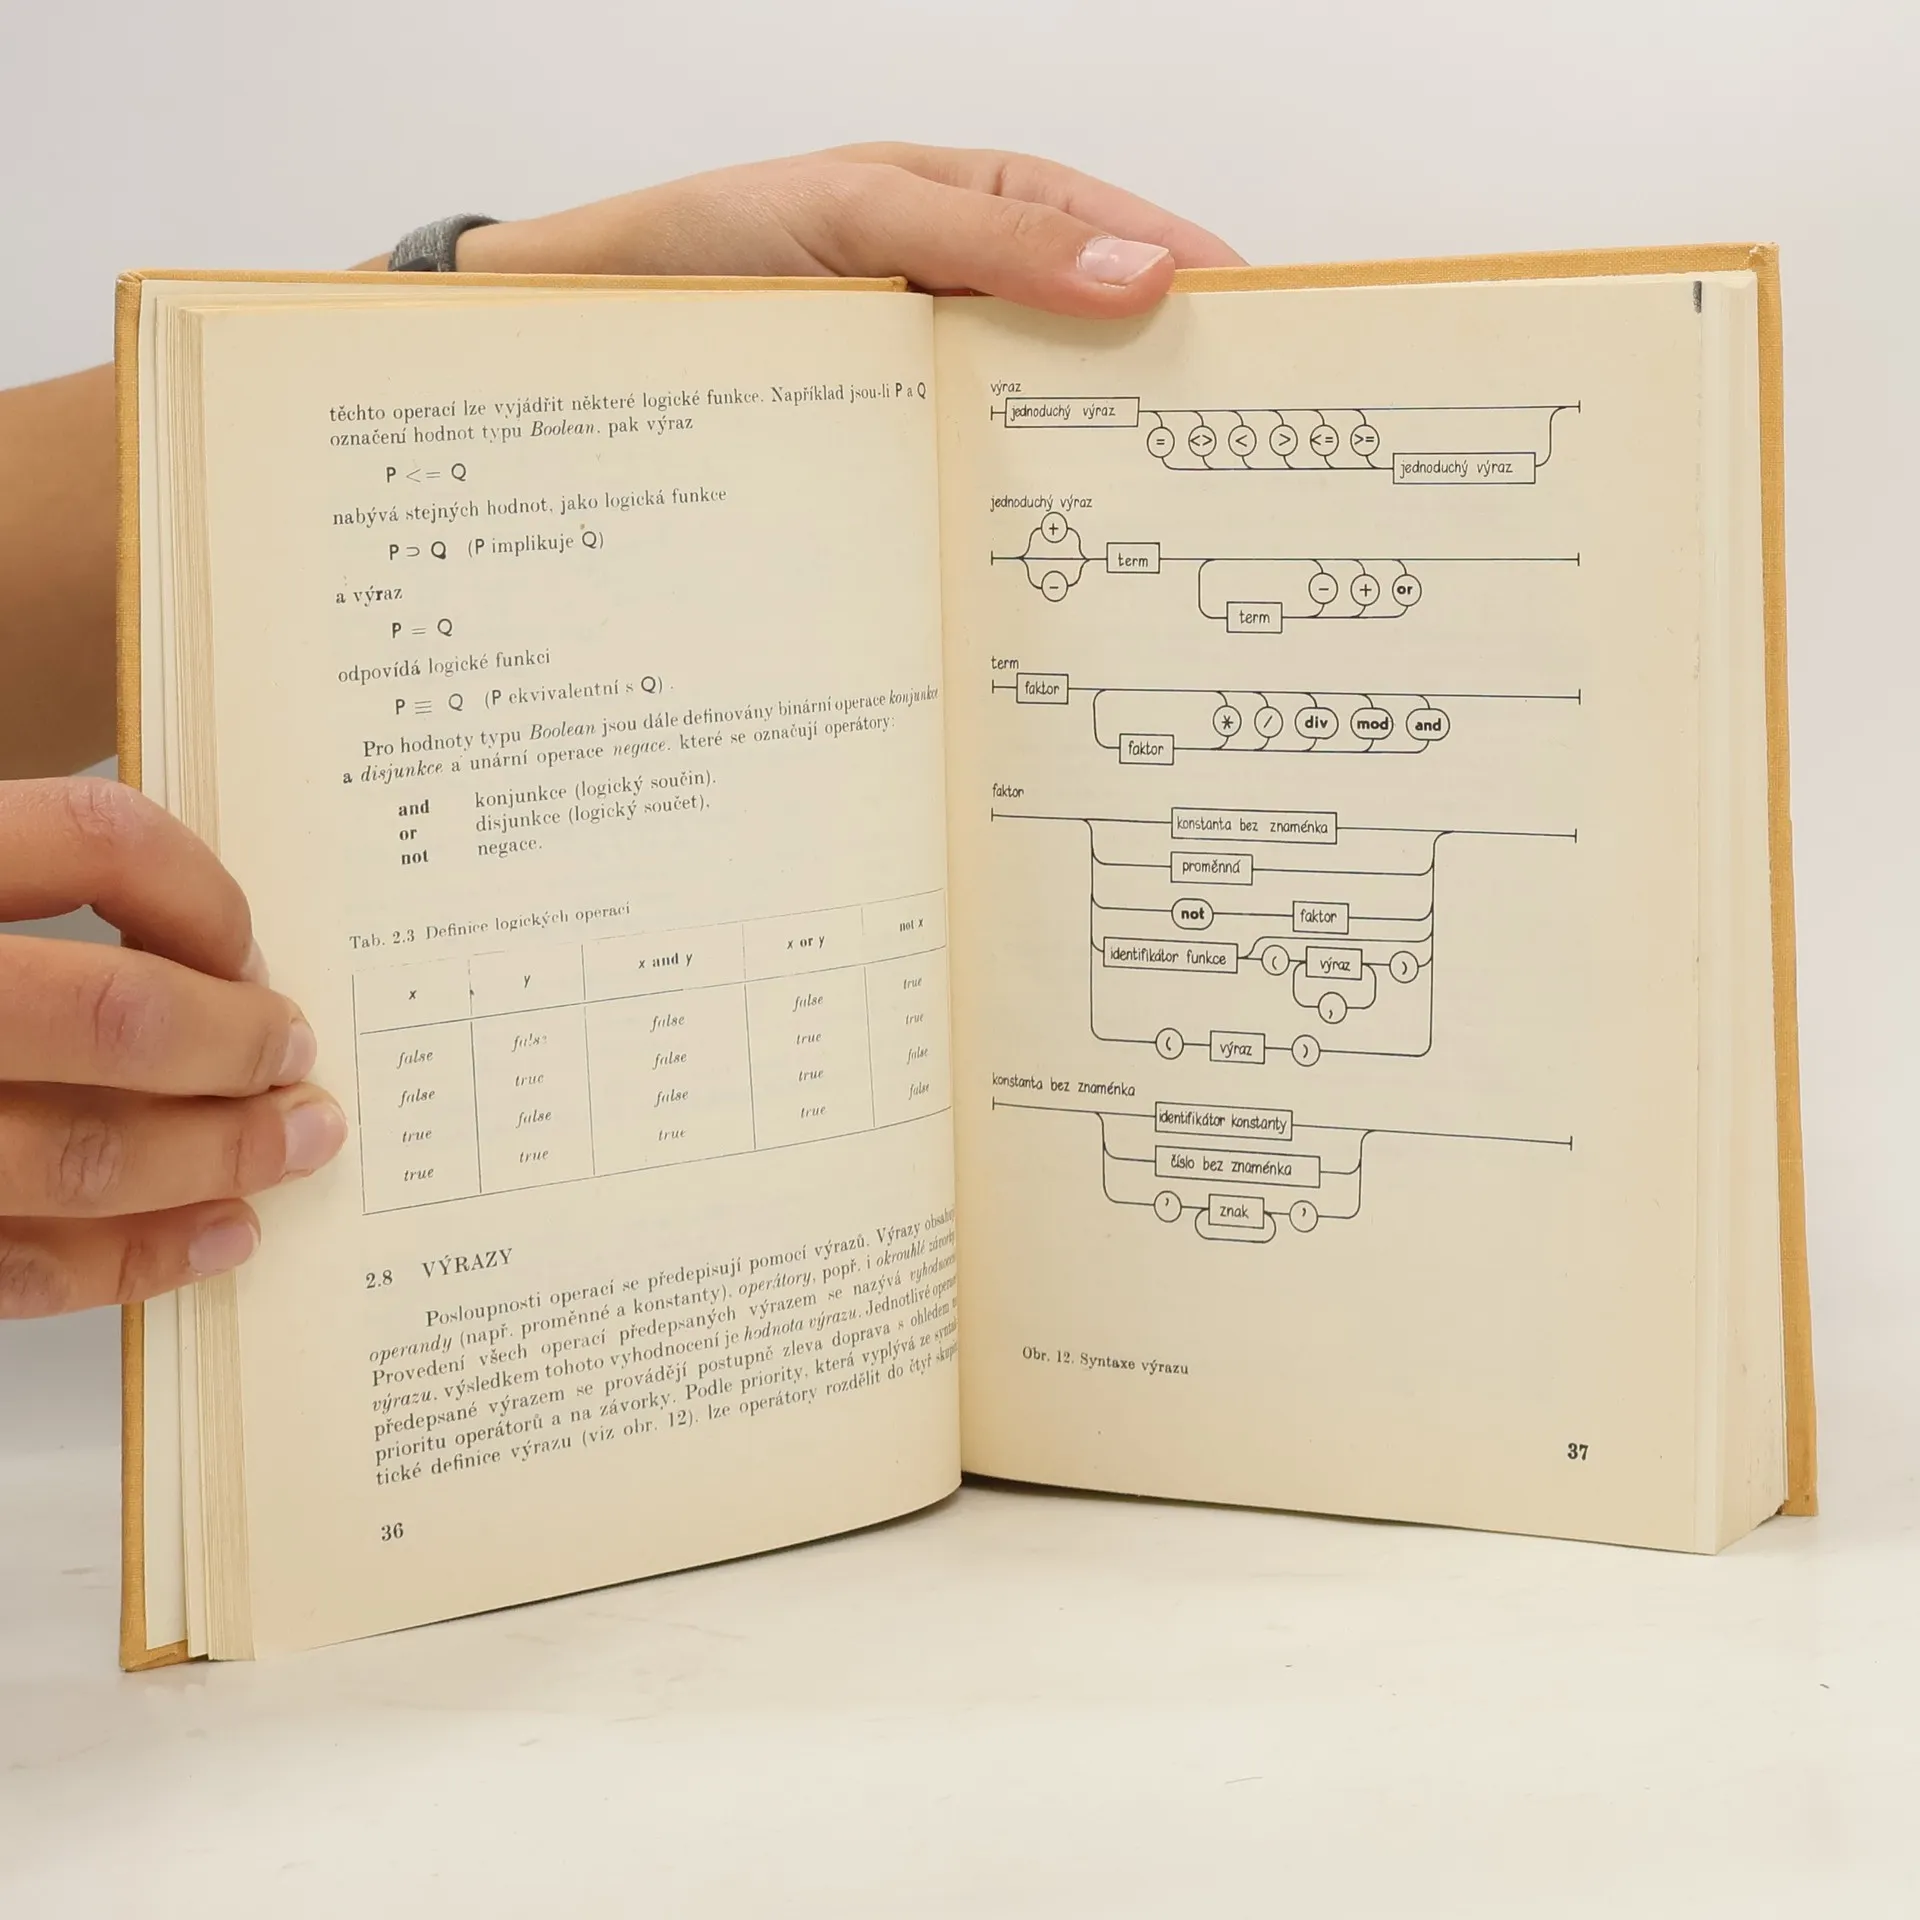 těchto operací lze vyjádřit některé logické funkce. Například jsou-li P a Q
označení hodnot typu Boolean, pak výraz
P <= Q
nabývá stejných hodnot, jako logická funkce
P ⊃ Q (P implikuje Q)
a výraz
P = Q
odpovídá logické funkci
P ≡ Q (P ekvivalentní s Q).
Pro hodnoty typu Boolean jsou dále definovány binární operace konjunkce
a disjunkce a unární operace negace, které se označují operátory:
and konjunkce (logický součin),
or disjunkce (logický součet),
not negace.
Tab. 2.3 Definice logických operací
x y x and y x or y not x
false false false false true
false true false true true
true false false true false
true true true true false
2.8 VÝRAZY
Posloupnosti operací se předepisují pomocí výrazů. Výrazy obsahují
operandy (např. proměnné a konstanty), operátory, popř. i okrouhlé závorky.
Provedení všech operací předepsaných výrazem se nazývá vyhodnocení
výrazu, výsledkem tohoto vyhodnocení je hodnota výrazu. Jednotlivé operace
předepsané výrazem se provádějí postupně zleva doprava s ohledem na
prioritu operátorů a na závorky. Podle priority, která vyplývá ze syntak-
tické definice výrazu (viz obr. 12), lze operátory rozdělit do čtyř skupin
36
výraz
jednoduchý výraz
= <> < > <= >=
jednoduchý výraz
jednoduchý výraz
+
term
-
- + or
term
term
faktor
* / div mod and
faktor
faktor
konstanta bez znaménka
proměnná
not faktor
identifikátor funkce ( výraz )
,
( výraz )
konstanta bez znaménka
identifikátor konstanty
číslo bez znaménka
' znak '
Obr. 12. Syntaxe výrazu
37